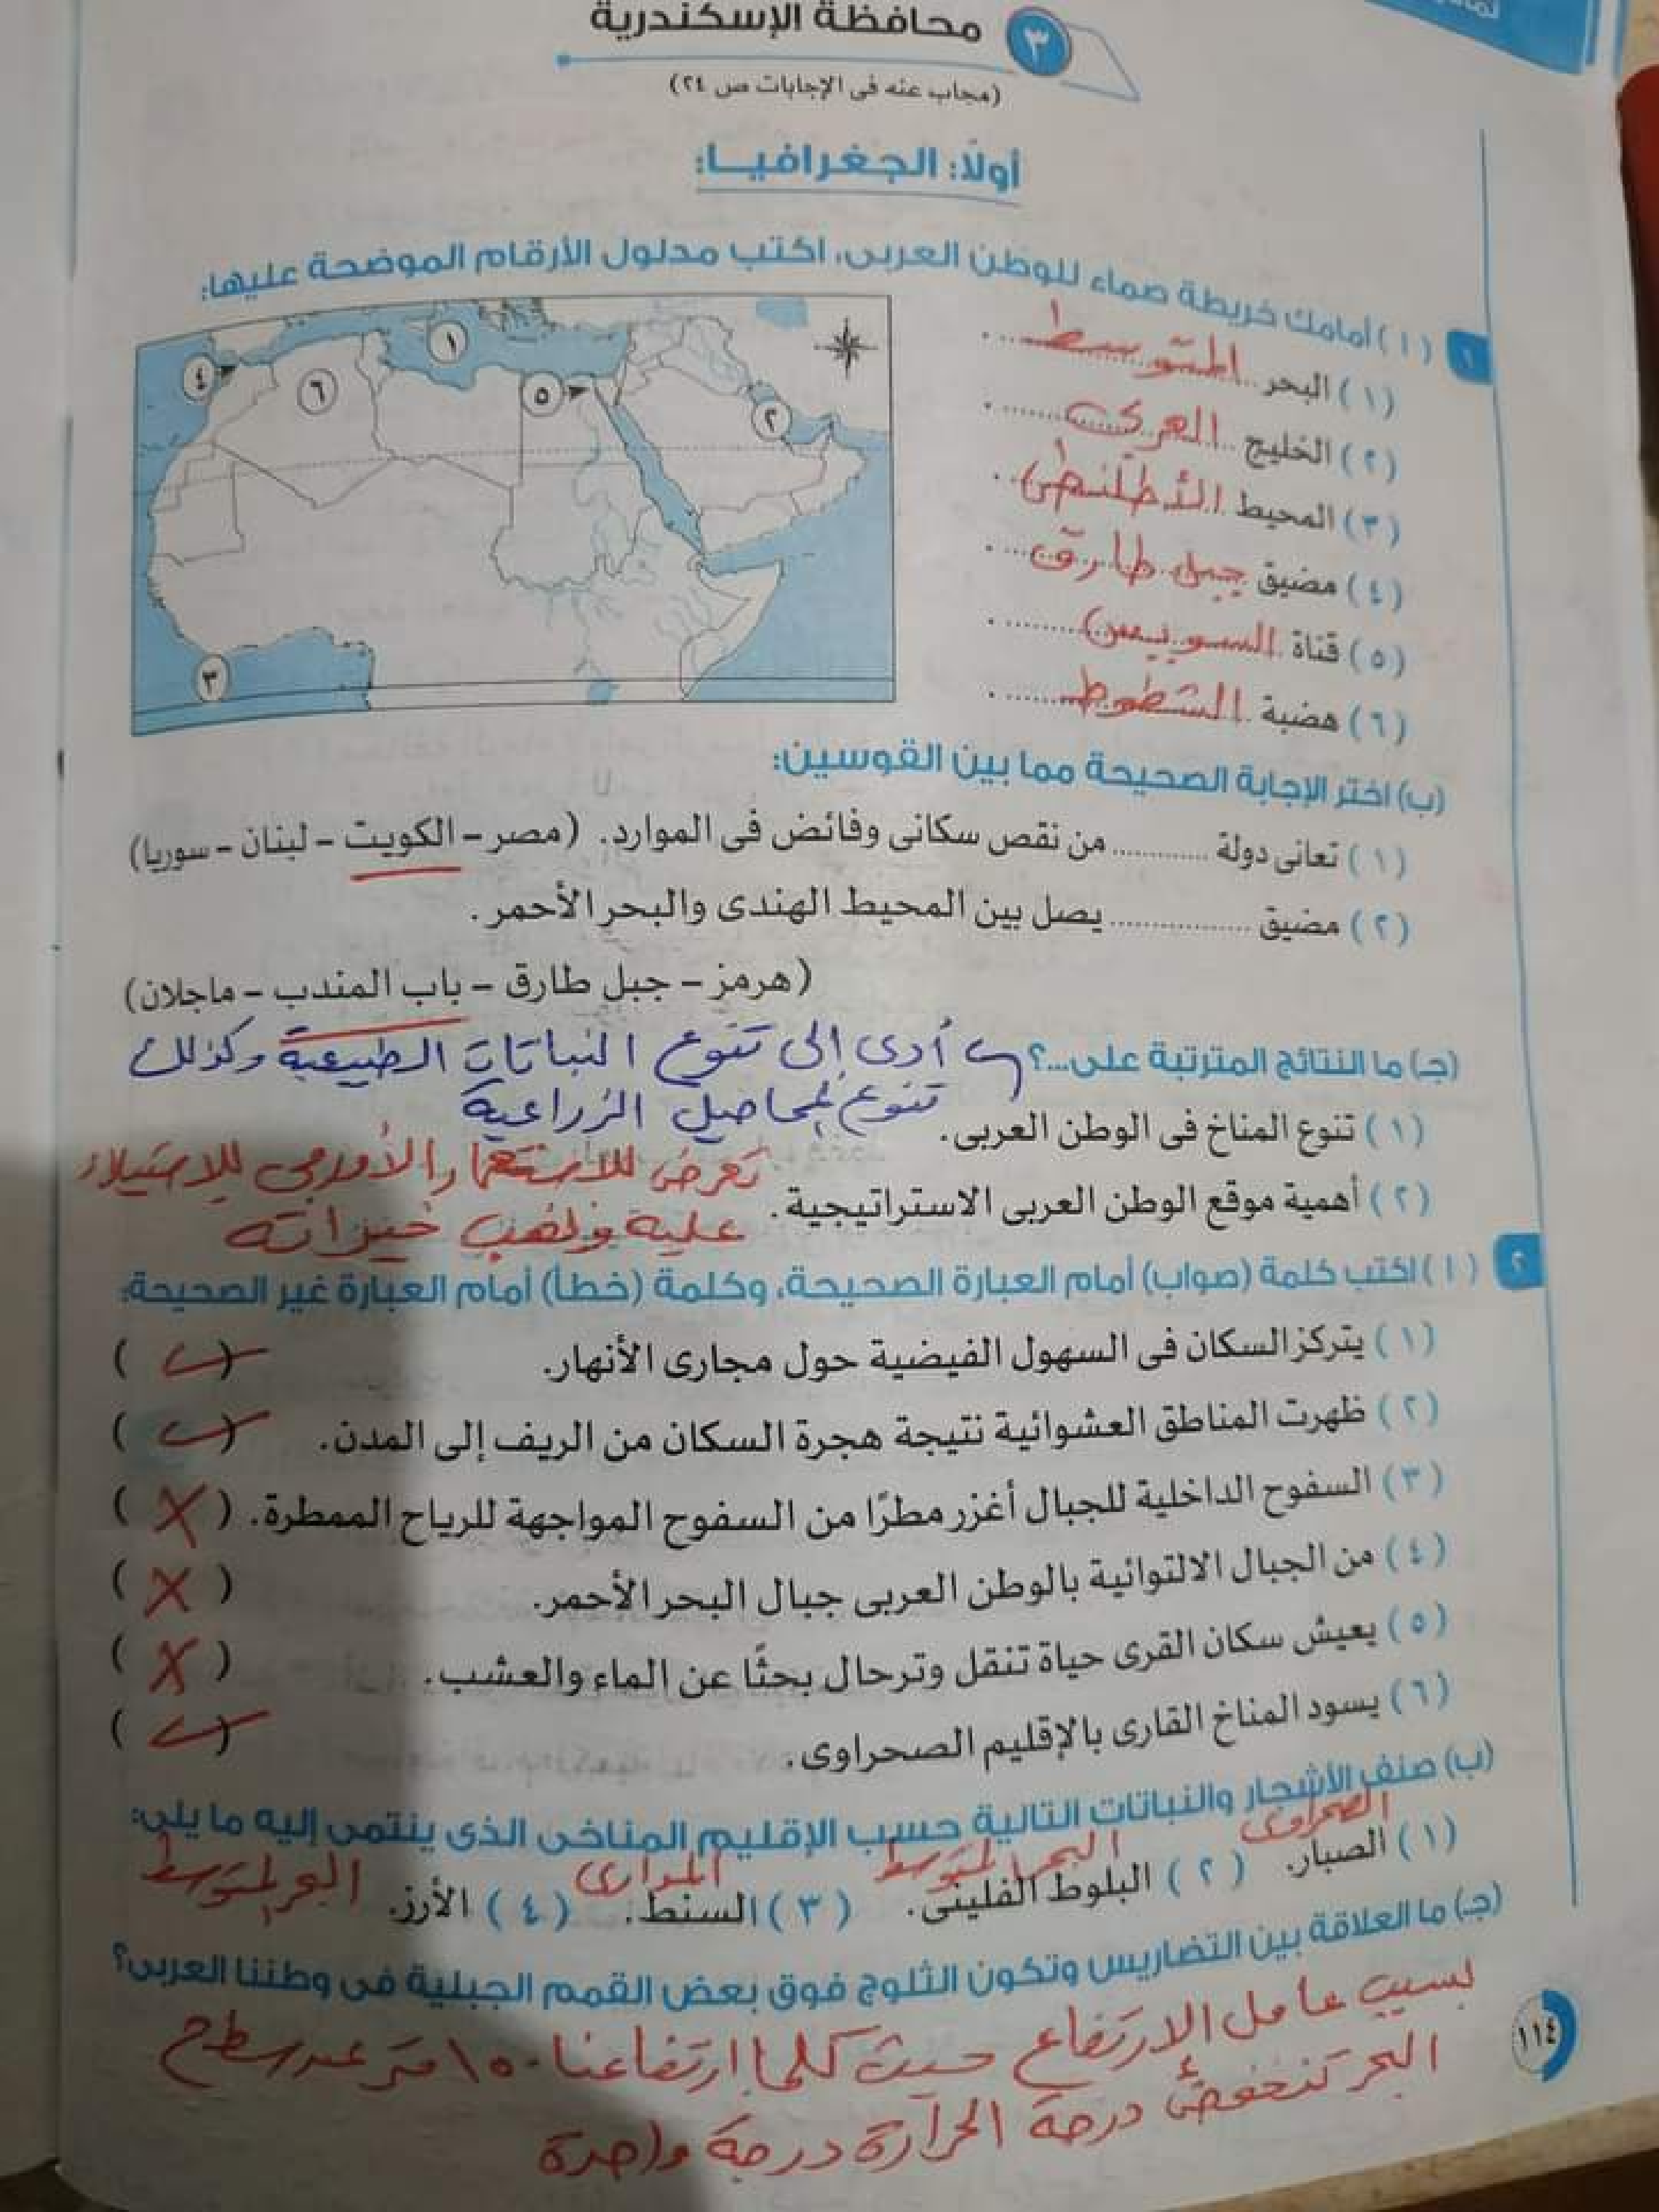 ٣ محافظة الإسكندرية
(مجاب عنه فى الإجابات ص ٢٤)
أولًا: الجغرافيا:
١ (١) أمامك خريطة صماء للوطن العربى، اكتب مدلول الأرقام الموضحة عليها:
(١) البحر المتوسط
(٢) الخليج العربى
(٣) المحيط الأطلنطى
(٤) مضيق جبل طارق
(٥) قناة السويس
(٦) هضبة الشطوط
١
٢
٣
٤
٥
٦
(ب) اختر الإجابة الصحيحة مما بين القوسين:
(١) تعانى دولة ............ من نقص سكانى وفائض فى الموارد. (مصر - الكويت - لبنان - سوريا)
(٢) مضيق ............... يصل بين المحيط الهندى والبحر الأحمر.
(هرمز - جبل طارق - باب المندب - ماجلان)
(جـ) ما النتائج المترتبة على...؟ أدى إلى تنوع النباتات الطبيعية وكذلك
تنوع المحاصيل الزراعية
(١) تنوع المناخ فى الوطن العربى.
تعرض للاستعمار الأوربى للاستيلاء
(٢) أهمية موقع الوطن العربى الاستراتيجية.
علية ونهب خيراته
٢ (١) اكتب كلمة (صواب) أمام العبارة الصحيحة، وكلمة (خطأ) أمام العبارة غير الصحيحة:
(١) يتركز السكان فى السهول الفيضية حول مجارى الأنهار. (✓)
(٢) ظهرت المناطق العشوائية نتيجة هجرة السكان من الريف إلى المدن. (✓)
(٣) السفوح الداخلية للجبال أغزر مطرًا من السفوح المواجهة للرياح الممطرة. (X)
(٤) من الجبال الالتوائية بالوطن العربى جبال البحر الأحمر. (X)
(٥) يعيش سكان القرى حياة تنقل وترحال بحثًا عن الماء والعشب. (X)
(٦) يسود المناخ القارى بالإقليم الصحراوى. (✓)
(ب) صنف الأشجار والنباتات التالية حسب الإقليم المناخى الذى ينتمى إليه ما يلى:
الصحراوى البحر المتوسط المدارى البحر المتوسط
(١) الصبار. (٢) البلوط الفلينى. (٣) السنط. (٤) الأرز.
(جـ) ما العلاقة بين التضاريس وتكون الثلوج فوق بعض القمم الجبلية فى وطننا العربى؟
بسبب عامل الارتفاع حيث كلما ارتفاعنا ١٥٠ متر عن سطح
البحر تنخفض درجة الحرارة درجة واحدة
١١٤